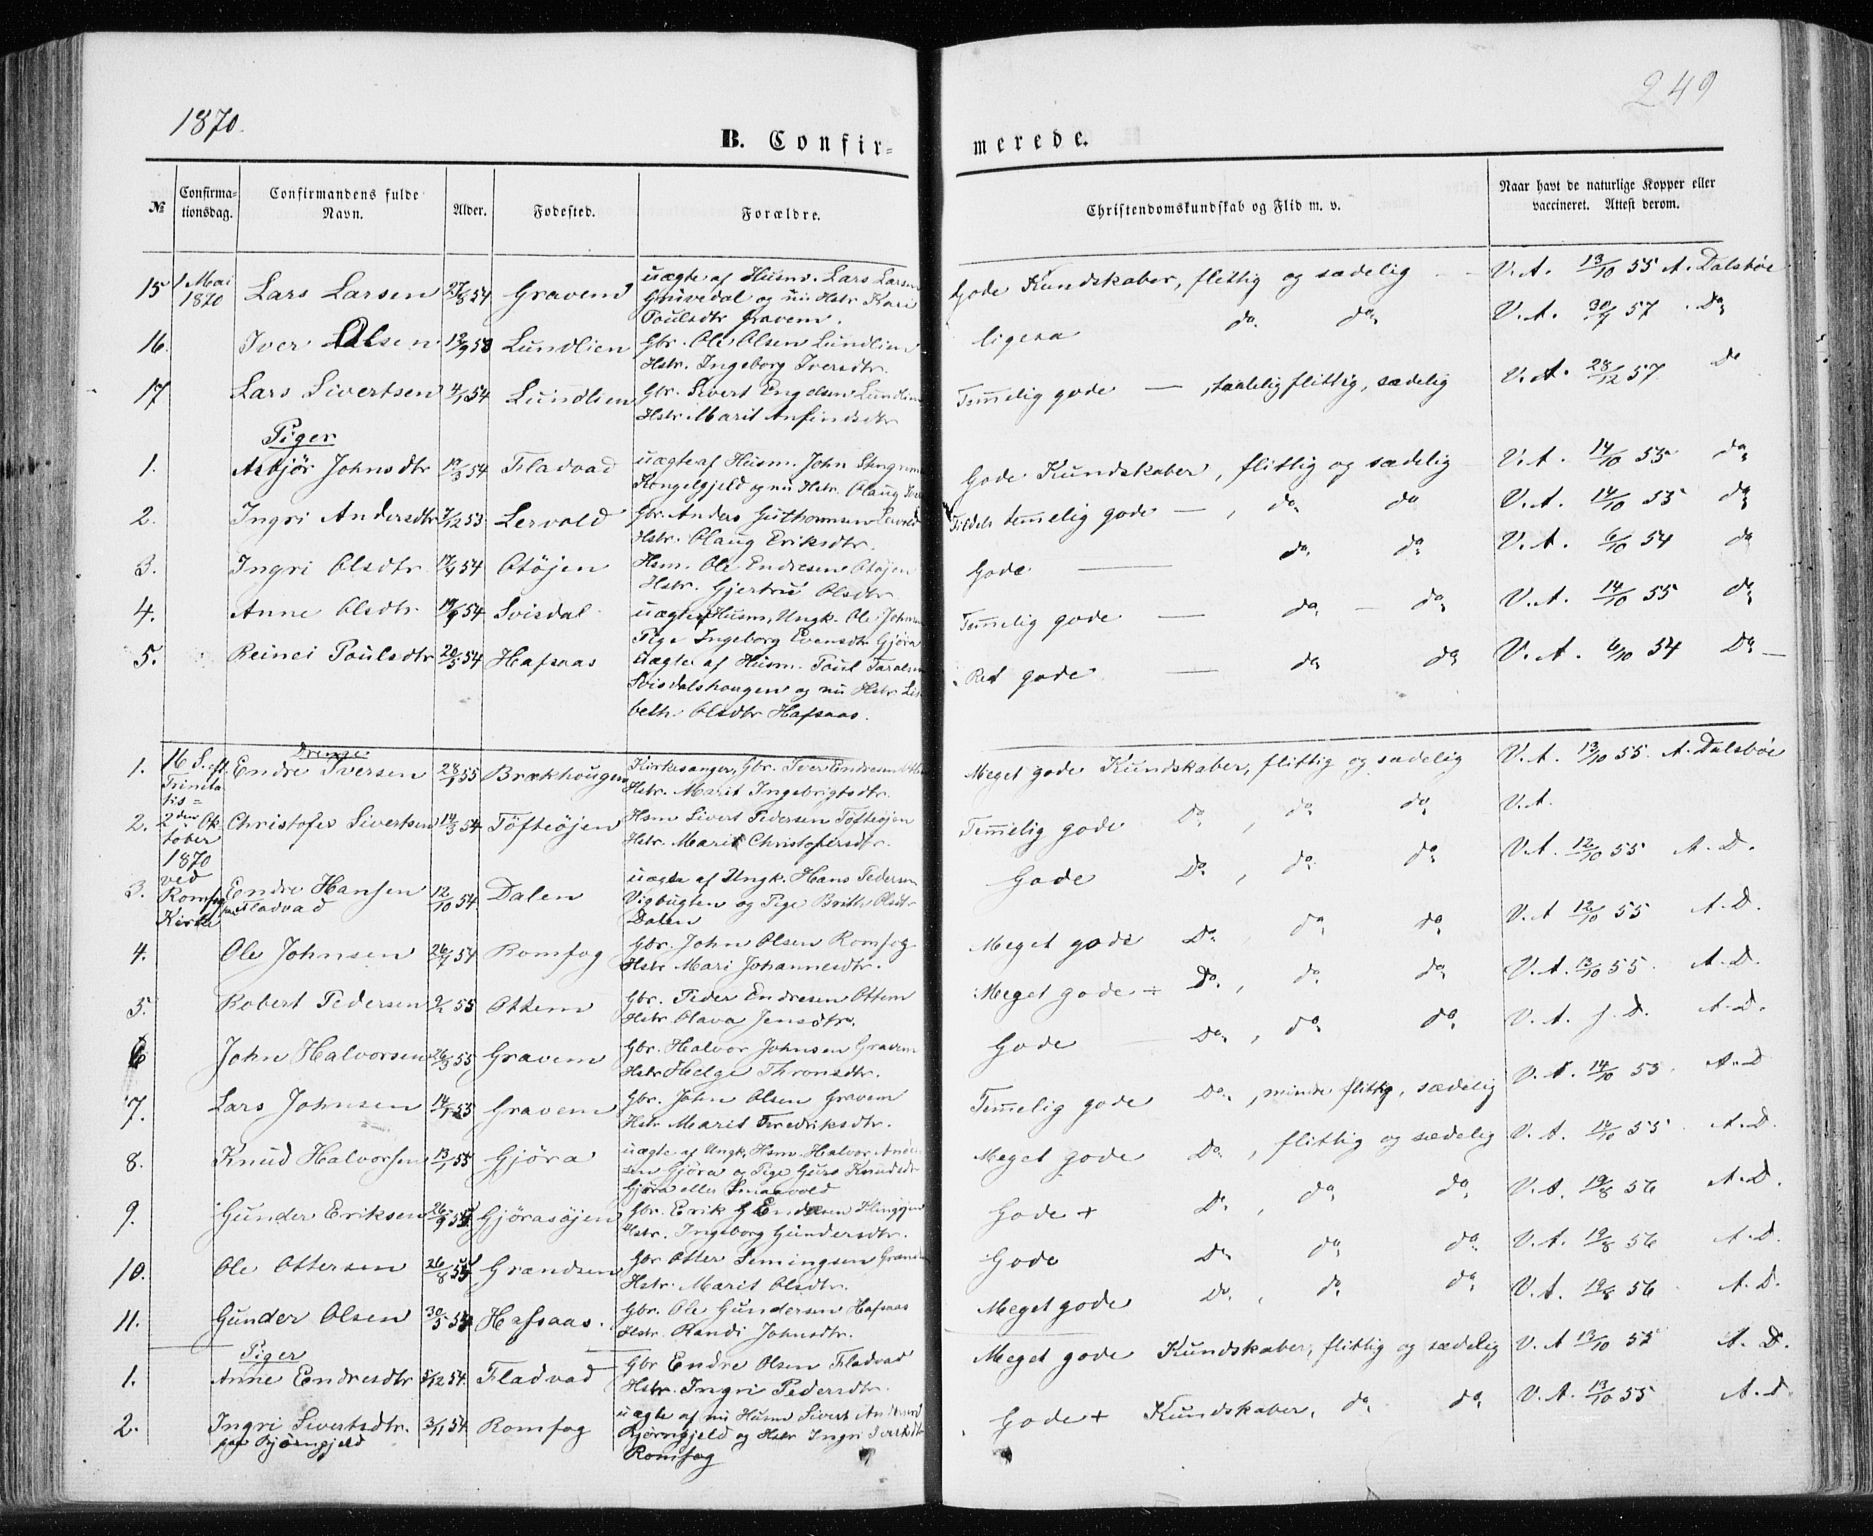 1870.
249
B. Confir-
merede.
№
Confirma-
tionsdag.
Confirmandens fulde
Navn.
Alder.
Fødested.
Forældre.
Christendomskundskab og Flid m. v.
Naar havt de naturlige Kopper eller
vaccineret. Attest derom.
15 1 Mai 1870 Lars Larsen 27/8 54 Gravem uægte af Husm. Lars Larsen
og nu Hstr Kari
Poulsdtr Gravem.
Gode Kundskaber, flittig og sædelig V.A. 13/10 55 A. Dalsbøe
16. Iver Olsen 53 Lundlien Gbr. Ole Olsen Lundlien
Hstr. Ingeborg Iversdtr.
ligesaa do. do. V.A. 57 Do
17 Lars Sivertsen 4/1 54 Lundlien Gbr. Sivert Engelsen Lundlien
Hstr. Marit Anfindsdtr
Temelig gode — taalelig flittig, sædelig V.A. 28/12 57 Do
Piger
1. Asbjør Johnsdtr 19/3 54 Fladvad uægte af Husm. John
Kongelgjeld og nu Hstr. Olaug
Gode Kundskaber, flittig og sædelig V.A. 14/10 55 do
2. Ingri Andersdtr 7/12 53 Lervold Gbr. Anders Guthormsen Lervold
Hstr. Olaug Eriksdtr.
Tildels temelig gode —, do do V.A. 14/10 55 do
3. Ingri Olsdtr 54 Otøjen Hsm. Ole Endresen Otøjen
Hstr. Gjertru Olsdtr
Gode — do do V.A. 6/10 54 do
4. Anne Olsdtr 19/9 54 Svisdal uægte af Husm, Ungk. Ole Johnsen
Pige Ingeborg Evensdtr Gjøra
Temelig gode — do — do V.A. 14/10 55 do
5. Reinei Poulsdtr 20/5 54 Hafsaas uægte af Husm. Poul
Svisdalshougen og nu Hstr Lis-
beth Olsdtr Hafsaas.
Ret gode — do do V.A. 6/10 54 Do —
Drenge
1. 16 S. eft. Endre Iversen 28/1 55 Brækhougen Kirkesanger, Gbr. Iver Endresen
Trinita-
tis =
Hstr. Marit Ingebrigtsdtr.
Meget gode Kundskaber, flittig og sædelig V.A. 13/10 55. A. Dalsbøe
2. 2den Ok- Christofer Sivertsen 14/3 54 Tøfteøjen Hsm Sivert Pedersen Tøfteøjen
tober
1870
Hstr. Marit Christofersdtr.
Temelig gode Do, do do V.A.
3. ved
Romfog
Kirke
Endre Hansen 12/10 54 Dalen uægte af Ungk. Hans Pedersen
Fladvad
Vigbugten og Pige Brith Olsdtr
Dalen
Gode Do, do do V.A. 12/10 55 A. D.
4. Ole Johnsen 26/7 54 Romfog Gbr. John Olsen Romfog
Hstr Mari Johannesdtr.
Meget gode Do, do do V.A 12/10 55 A. D.
5. Robert Pedersen 55 Ottem Gbr. Peder Endresen Ottem
Hstr Olava Jensdtr.
Meget gode ÷ Do, do do V.A. 13/10 55. A. D.
6 John Halvorsen 26/3 55 Gravem Gbr. Halvor Johnsen Gravem
Hstr Helge Thronsdtr.
Gode — Do, do do V.A. f. D. A. D.
7. Lars Johnsen 53 Gravem Gbr. John Olsen Gravem
Hstr Marit Fredriksdtr.
Temelig gode Do, mindre flittig, sædelig V.A. 14/10 53. A. D
8. Knud Halvorsen 13/1 55 Gjøra uægte af Ungk. Hsm. Halvor Ander-
sen Gjøra og Pige Guro Knudsdtr
Gjøra eller Smaavold
Meget gode Do, flittig og sædelig V.A. 55. A. D.
9. Gunder Eriksen 26/9 54 Gjørasøjen Gbr. Erik Endresen
Hstr. Ingeborg Gundersdtr.
Gode + Do, do do V.A. 19/8 56 A. D.
10. Ole Ottersen 26/8 55 Grandsen Gbr Otter Semingsen
Hstr. Marit Olsdtr.
Gode Do do do. V.A. 19/8 56 A. D.
11. Gunder Olsen 30/5 54 Hafsaas. Gbr. Ole Gundersen Hafsaas
Hstr. Randi Johnsdtr.
Meget gode Do., do do V.A. 19/8 56 A. D.
Piger
1. Anne Endresdtr 5/12 54. Fladvad Gbr Endre Olsen Fladvad
Hstr. Ingri Pedersdtr.
Meget gode Kundskaber, flittig og sædelig V.A 13/10 55 A. D.
2. Ingri Sivertsdtr. 3/11 54 Romfog uægte af nu Husm Sivert
Bjørngjeld
Bjørngjeld og Hstr Ingri
Romfog
Gode + Kundskaber, do do V.A. 13/10 55 A. D.